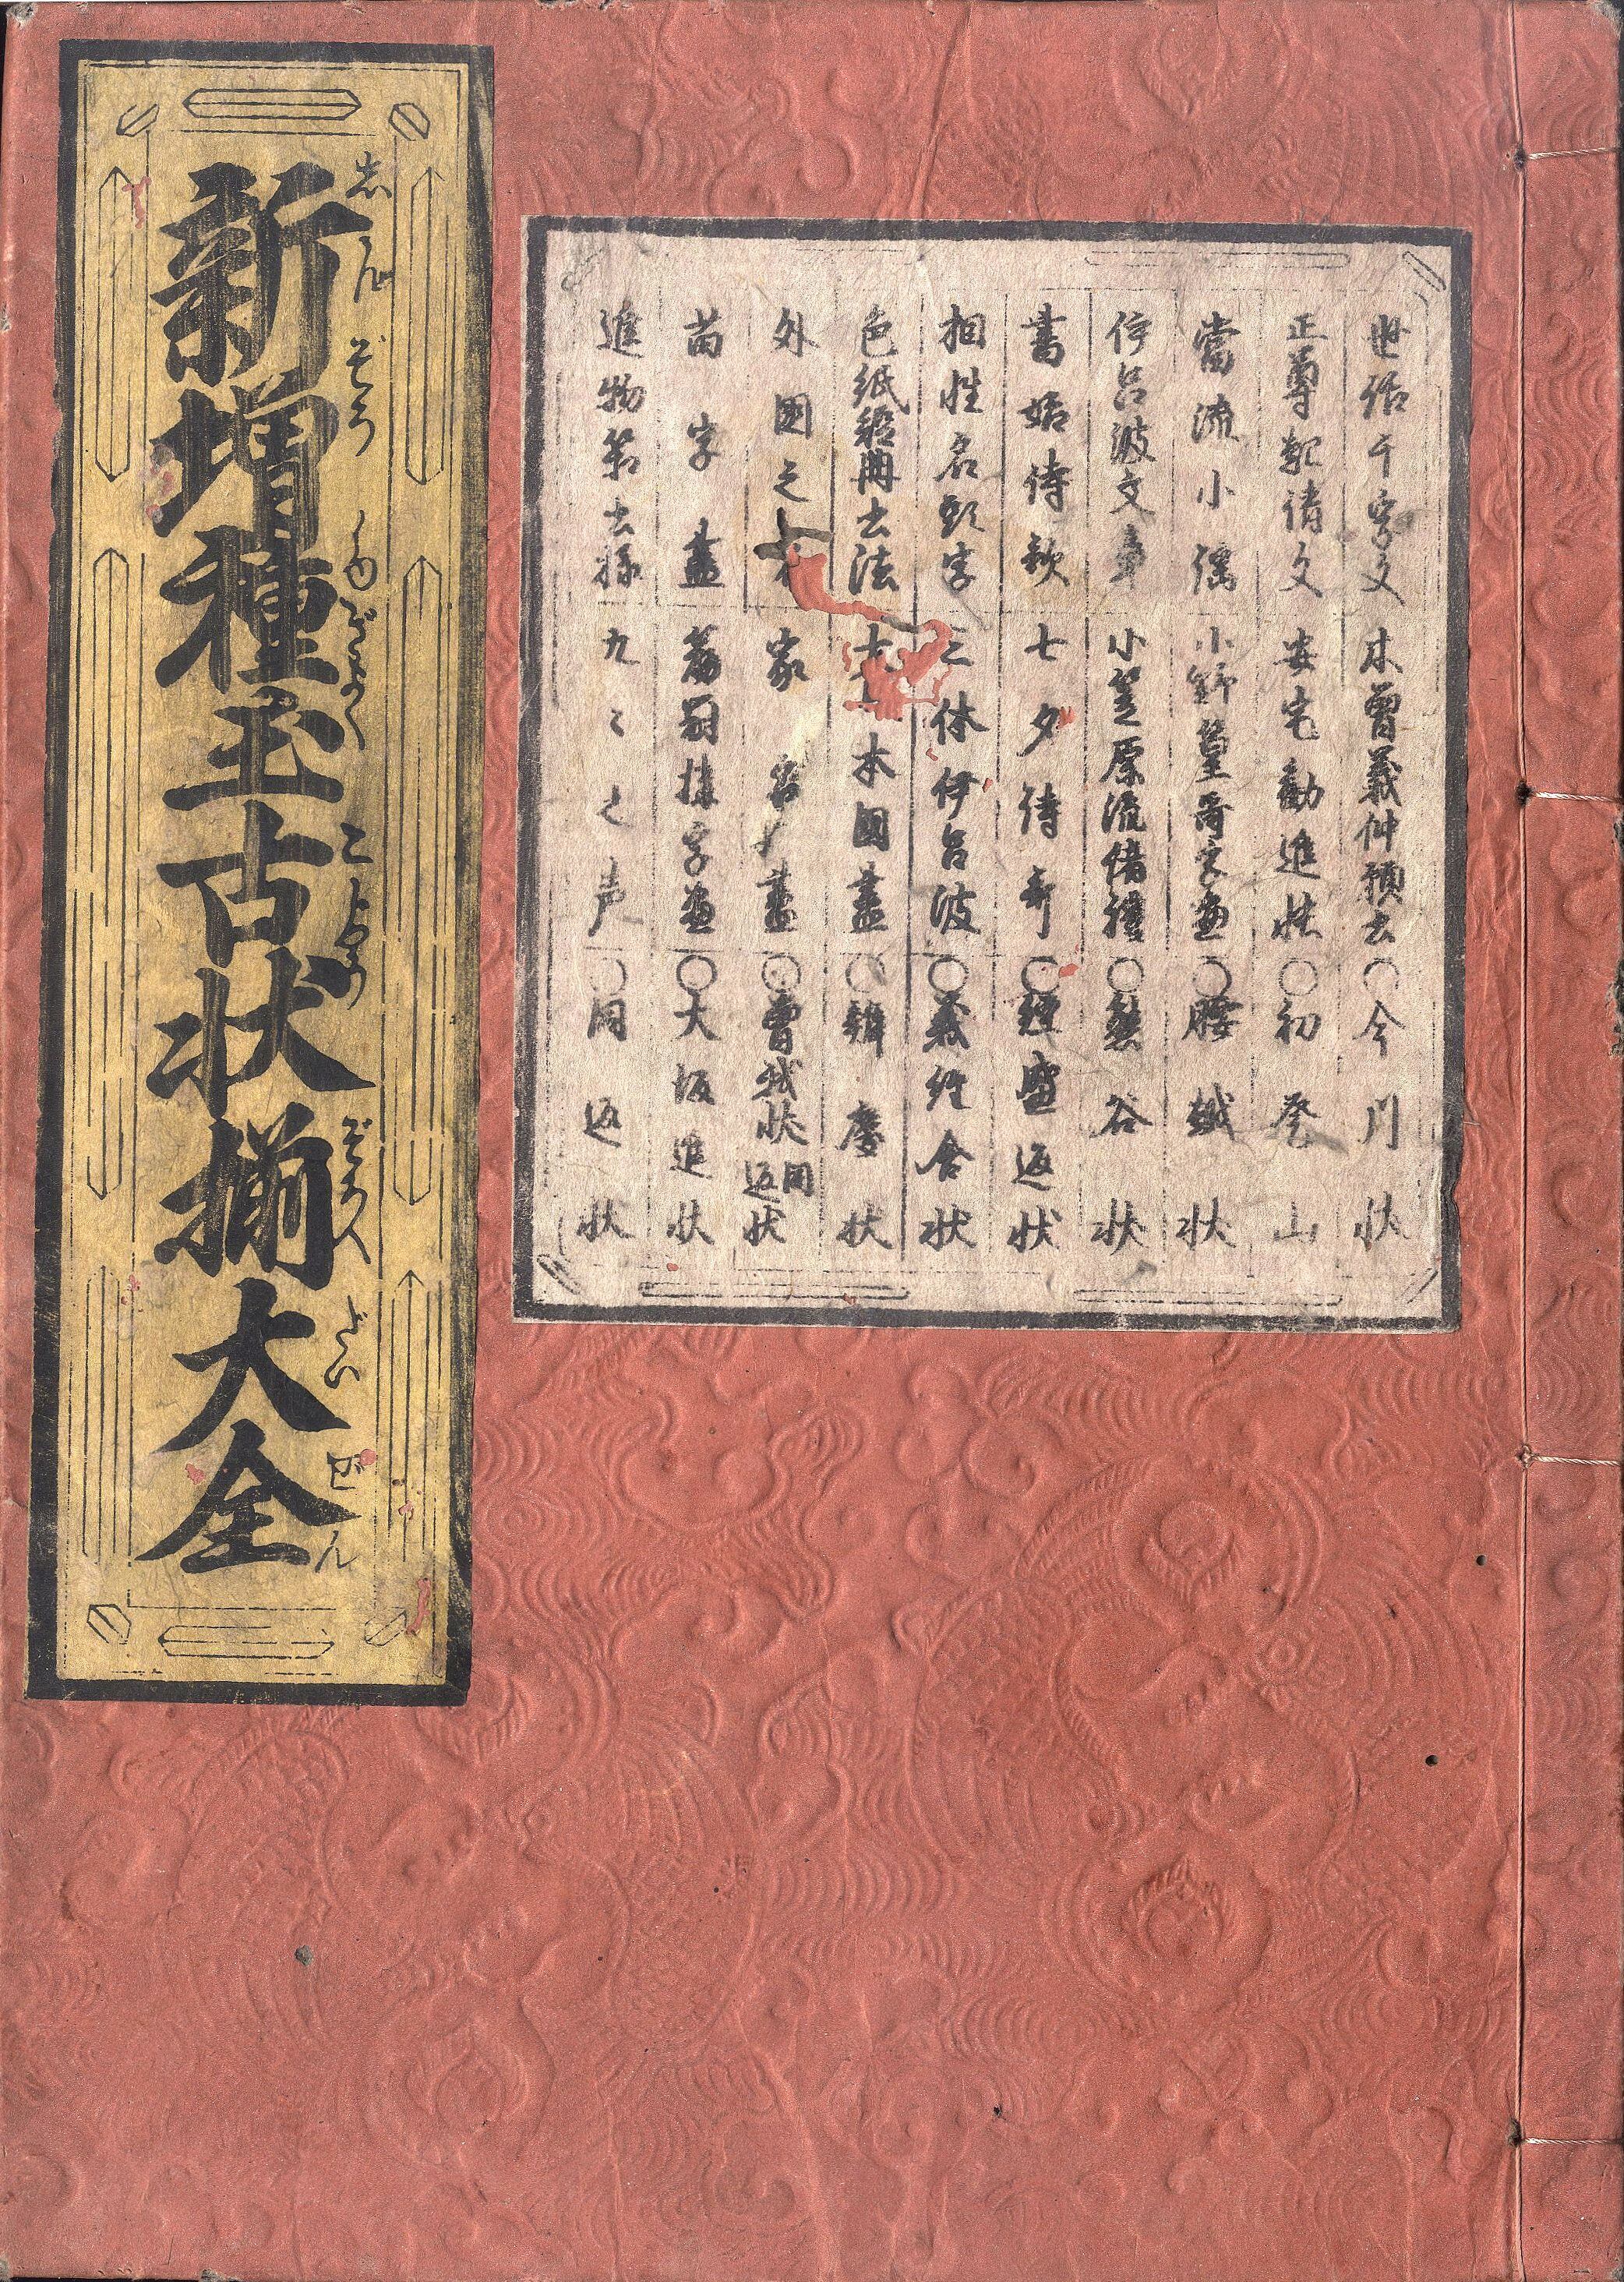 世話千字文 木曽義仲願書 〇今川状
正尊起請文 安宅勧進帳 〇初登山
當流小謡 小野篁哥字盡 〇腰越状
伊呂波文章 小笠原流諸禮 〇熊谷状
書始詩歌 七夕詩哥 〇經盛返状
相性名頭字 三体伊呂波 〇義経含状
色紙短冊書法 大日本国盡 〇辨慶状
外國之 家名盡 〇曽我状同返状
苗字盡 篇冠構字盡 〇大坂進状
進物箱書様 九々之声 〇同返状
新増種玉古状揃大全
志んぞうしゆぎよくこじやうぞろへだいぜん